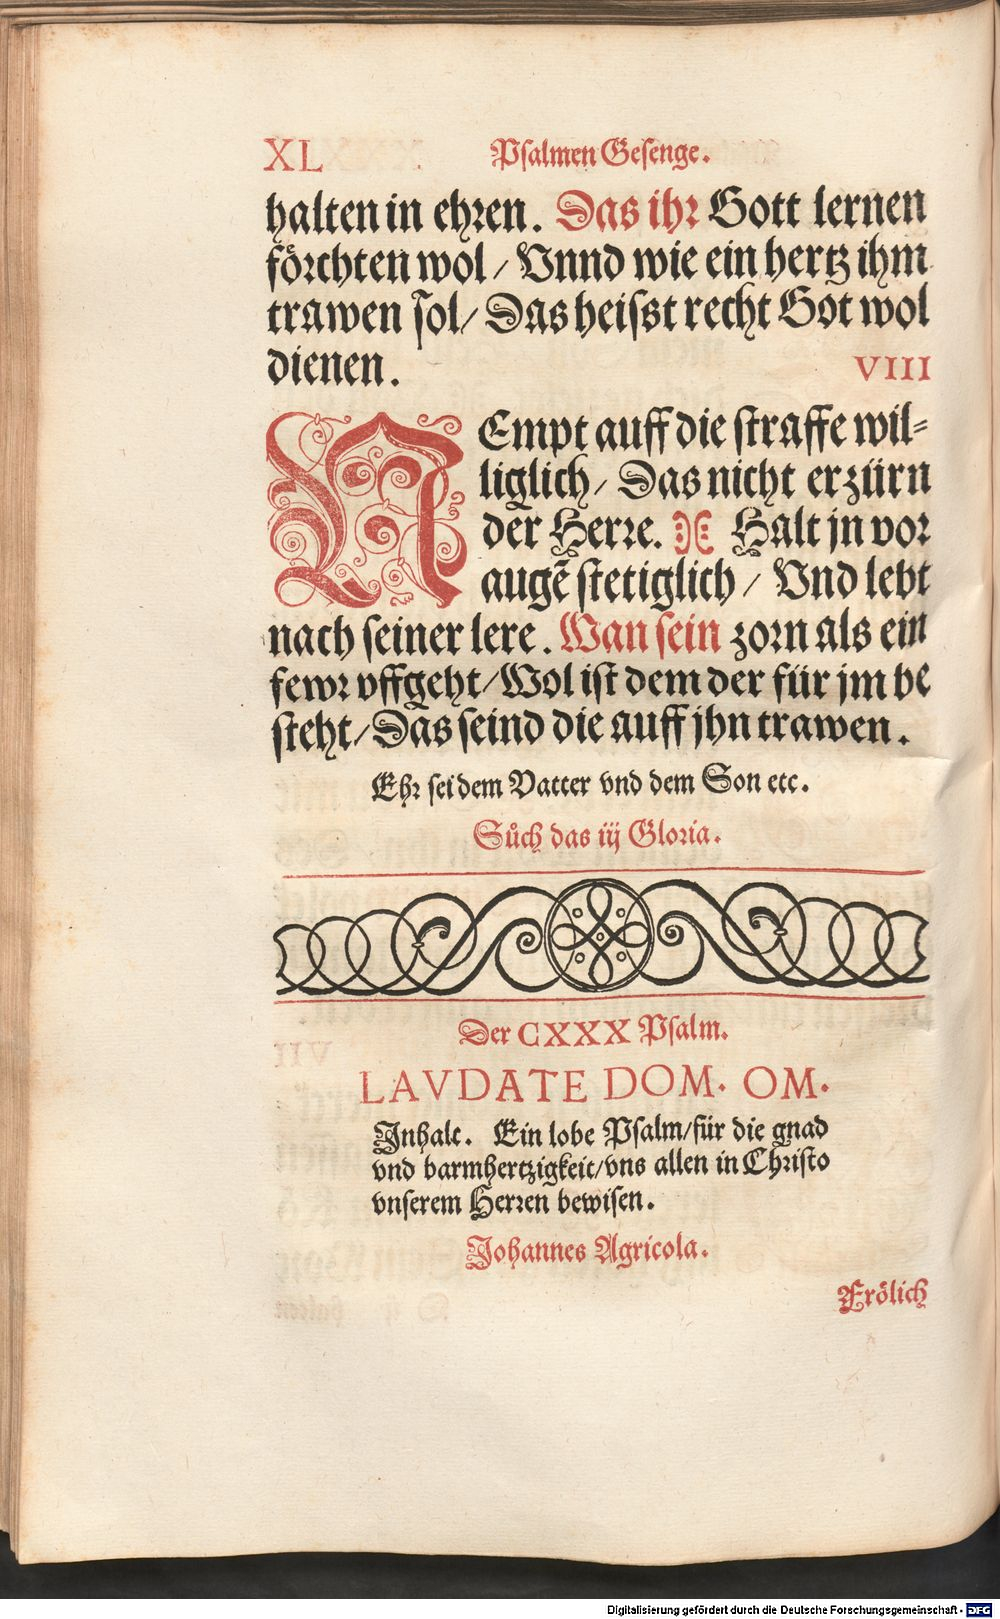 XL Psalmen Gesenge.
halten in ehren. Das ihr Gott lernen
fo̊rchten wol / Vnnd wie ein hertz ihm
trawen sol / Das heisst recht Got wol
dienen. VIII
NEmpt auff die straffe wil-
liglich / Das nicht erzürn
der Herre. Halt jn vor
augē stetiglich / Vnd lebt
nach seiner lere. Wan sein zorn als ein
fewr vffgeht / Wol ist dem der für jm be
steht / Das seind die auff jhn trawen.
Ehr sei dem Vatter vnd dem Son etc.
Sůch das iij Gloria.
Der CXXX Psalm.
LAVDATE DOM. OM.
Inhalt. Ein lobe Psalm / für die gnad
vnd barmhertzigkeit / vns allen in Christo
vnserem Herren bewisen.
Johannes Agricola.
Frölich
Digitalisierung gefördert durch die Deutsche Forschungsgemeinschaft - DFG